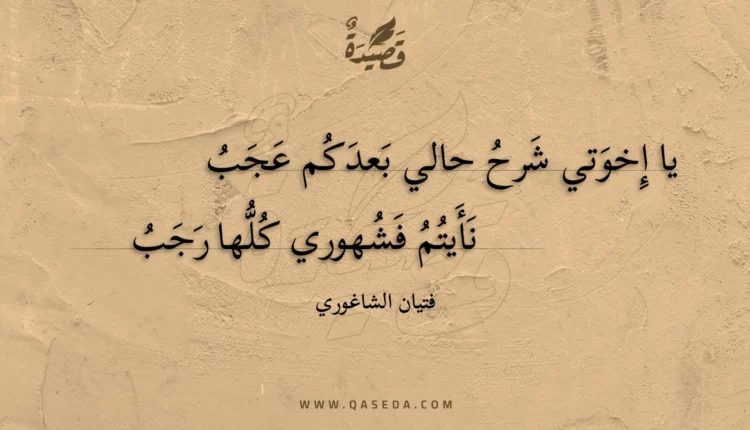 قَصِيدَةٌ
يا إِخوَتي شَرحُ حالي بَعدَكُم عَجَبُ
نَأَيتُمُ فَشُهوري كُلُّها رَجَبُ
فتيان الشاغوري
WWW.QASEDA.COM